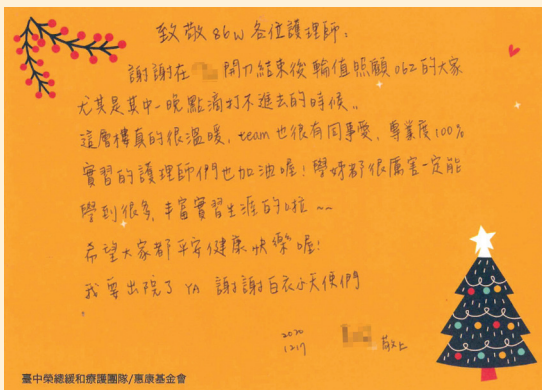 致敬86w各位護理師:
謝謝在 開刀結束後輪值照顧062的大家
尤其是其中一晚點滴打不進去的時候..
這層樓真的很溫暖、team也很有同事愛、專業度100%
實習的護理師們也加油喔!學姊都很厲害一定能
學到很多,丰富實習生涯的啦~~
希望大家都平安健康快樂喔!
我要出院了 YA 謝謝白衣小天使們
2020
12.17 敬上
臺中榮總緩和療護團隊/惠康基金會